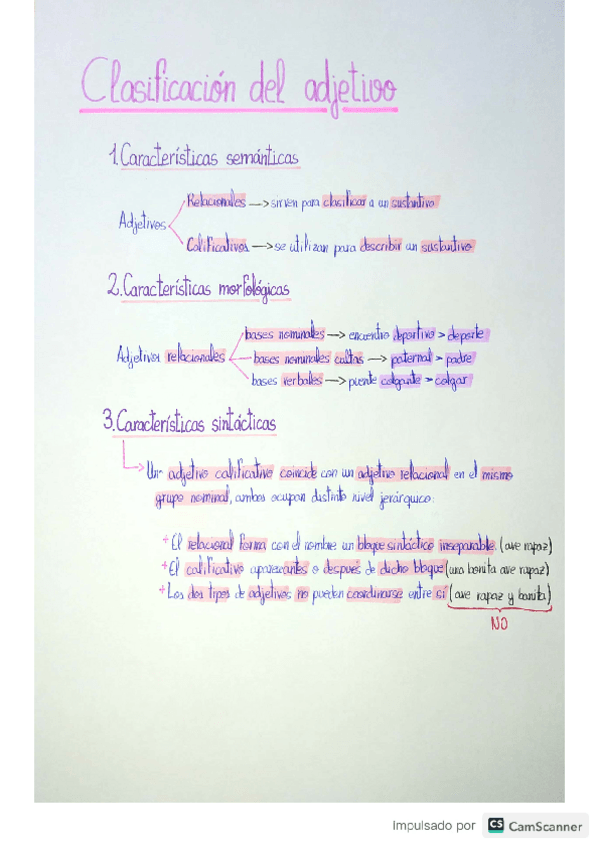 Clasificación del adjetivo
1. Características semánticas
Adjetivos
Relacionales → sirven para clasificar a un sustantivo
Calificativos → se utilizan para describir un sustantivo
2. Características morfológicas
Adjetivos relacionales
bases nominales → encuentro deportivo > deporte
bases nominales cultas → paternal > padre
bases verbales → puente colgante > colgar
3. Características sintácticas
Un adjetivo calificativo coincide con un adjetivo relacional en el mismo
grupo nominal, ambos ocupan distinto nivel jerárquico:
+ El relacional forma con el nombre un bloque sintáctico inseparable. (ave rapaz)
+ El calificativo aparece antes o después de dicho bloque (una bonita ave rapaz)
+ Los dos tipos de adjetivos no pueden coordinarse entre sí (ave rapaz y bonita)
NO
Impulsado por CS CamScanner